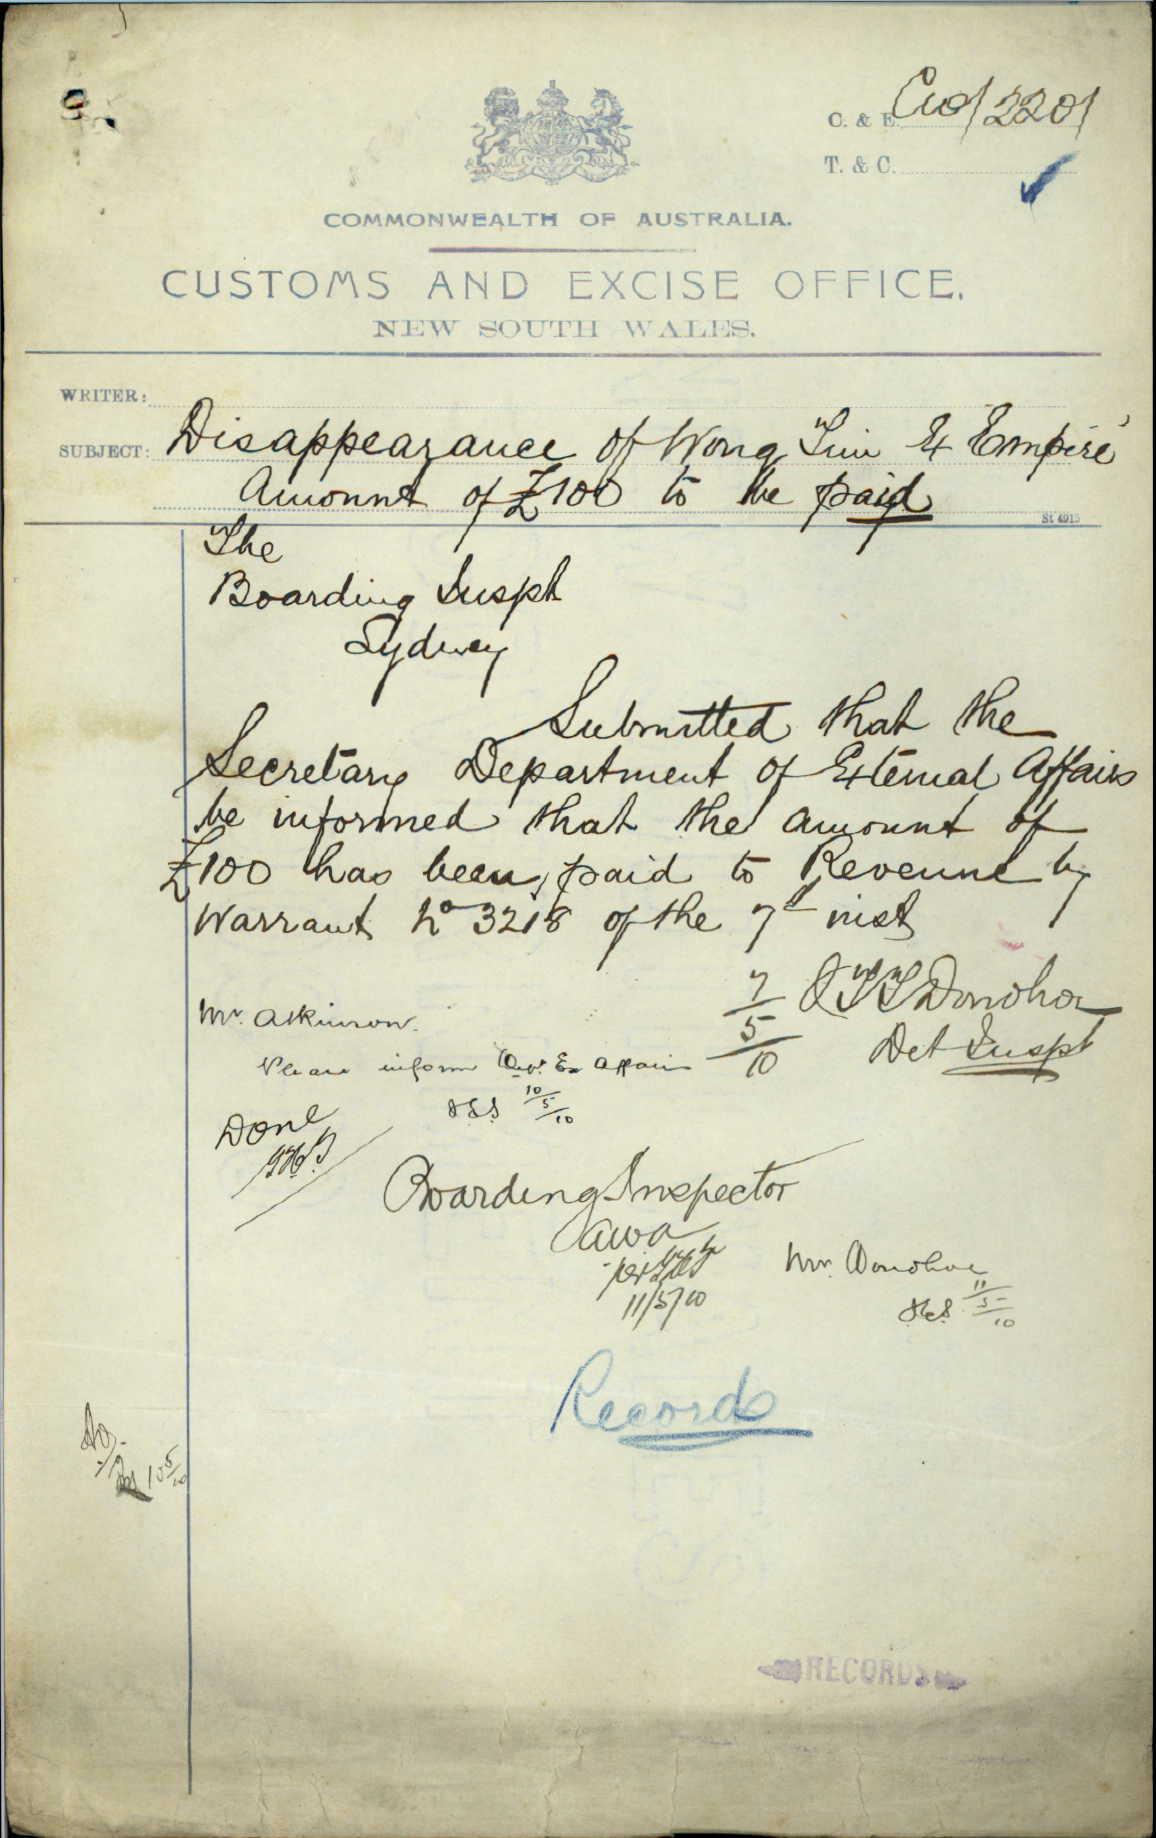 C. & E. Cus/2201
T. & C.
COMMONWEALTH OF AUSTRALIA.
CUSTOMS AND EXCISE OFFICE.
NEW SOUTH WALES.
WRITER:
SUBJECT: Disappearance of Wong Ex "Empire"
Amount of £100 to be paid
St 4915
The
Boarding Inspt
Sydney
Submitted that the
Secretary Department of External Affairs
be informed that the amount of
£100 has been paid to Revenue by
Warrant No 3218 of the 7th inst
7/5/10 Donohoe
Det Inspt
Mr. Atkinson.
Please inform Ex Affairs
10/5/10
Done
Boarding Inspector
AWA
per
11/5/10
Mr. Donohoe
11/5/10
Records
10 5/10
RECORDS